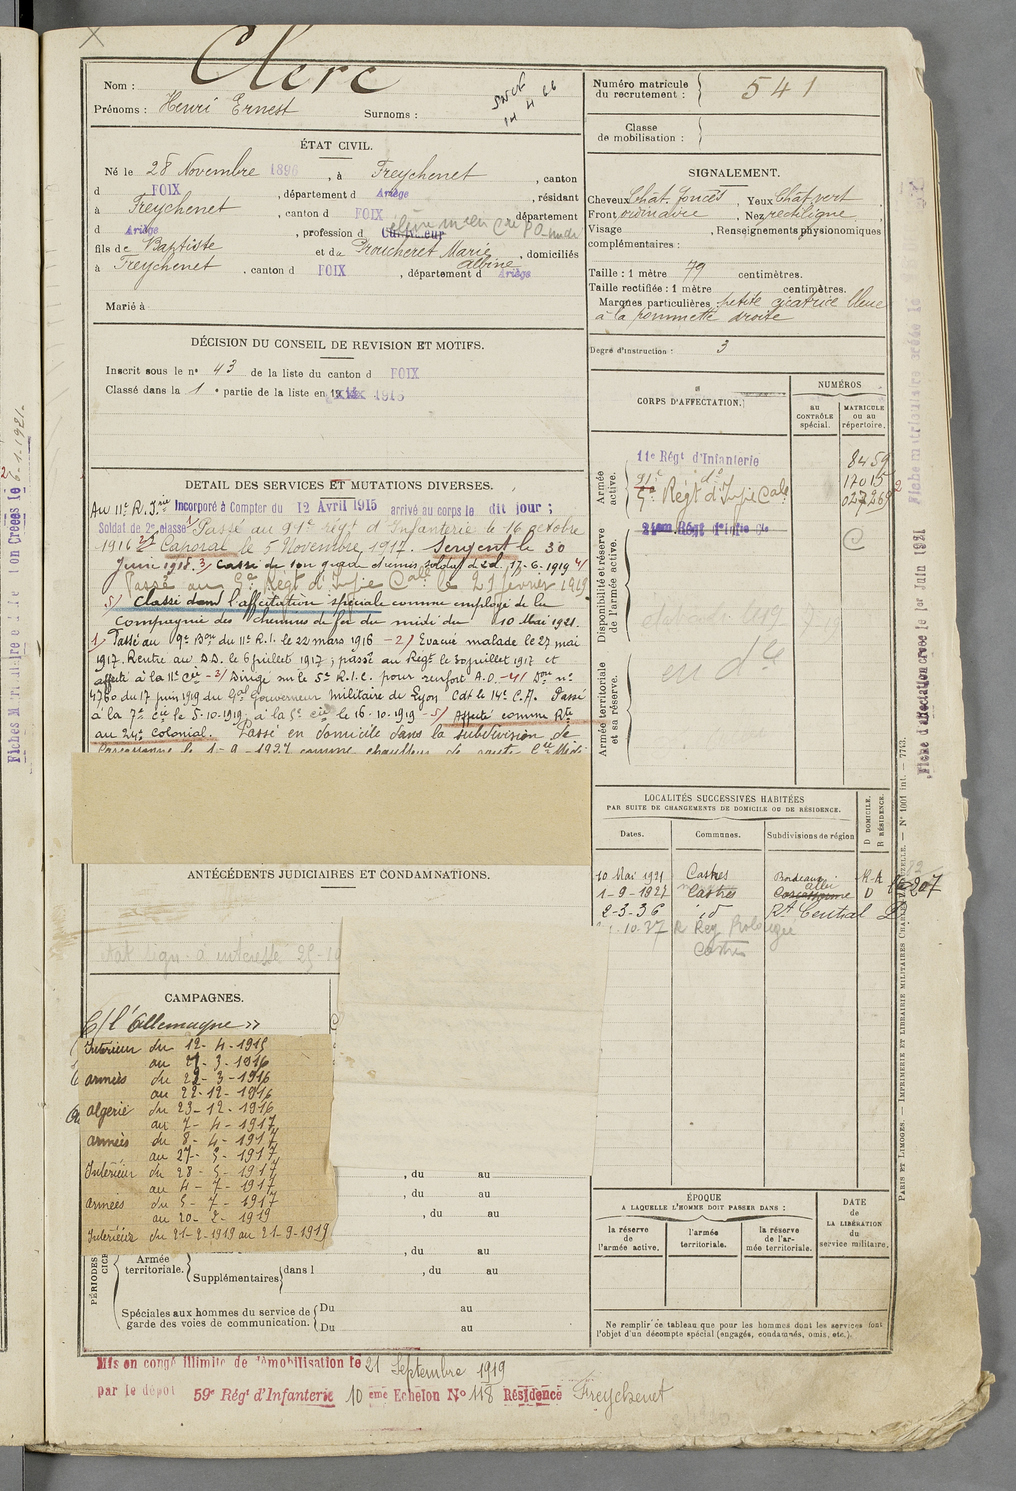 Clerc
Nom :
Prénoms : Henri Ernest Surnoms :
Numéro matricule
du recrutement : 541
Classe
de mobilisation :
ÉTAT CIVIL.
Né le 28 Novembre 1896, à Freychenet, canton
d FOIX, département d Ariège, résidant
à Freychenet, canton d FOIX, département
d Ariège, profession d Cultivateur
fils de Baptiste et de Proucheret Marie Albine, domiciliés
à Freychenet, canton d FOIX, département d Ariège
Marié à
SIGNALEMENT.
Cheveux Chat. foncés, Yeux Chat vert,
Front ordinaire, Nez rectiligne,
Visage , Renseignements physionomiques
complémentaires :
Taille : 1 mètre 79 centimètres.
Taille rectifiée : 1 mètre centimètres.
Marques particulières : petite cicatrice bleue
à la pommette droite
Degré d'instruction : 3
DÉCISION DU CONSEIL DE REVISION ET MOTIFS.
Inscrit sous le n° 43 de la liste du canton d FOIX
Classé dans la 1 e partie de la liste en 1916
CORPS D'AFFECTATION.
NUMÉROS
AU CONTRÔLE spécial.
MATRICULE OU AU répertoire.
Armée active.
11e Régt d'Infanterie 8459
91e do 17015
5e Régt d'Infie Cale 027269
Disponibilité et réserve de l'armée active.
24eme Régt d'Infie Cle
C
Armée territoriale et sa réserve.
DETAIL DES SERVICES ET MUTATIONS DIVERSES.
Au 11e R. Inie Incorporé à Compter du 12 Avril 1915 arrivé au corps le dit jour ;
Soldat de 2e classe 1/ Passé au 91e régt d'Infanterie le 16 octobre
1916 2/ Caporal le 5 Novembre 1917. Sergent le 30
Juin 1918. 3/ Cassé de son grade et remis soldat de 2cl. 17-6-1919 4/
Passé au 5e Régt d'Infie Cale le 21 février 1919
5/ Classé dans l'affectation spéciale comme employé de la
Compagnie des chemins de fer du midi du 10 Mai 1921.
1/ Passé au 9e Bon du 11e R.I. le 22 mars 1916 - 2/ Evacué malade le 27 mai
1917. Rentré au D.D. le 6 juillet 1917 ; passé au Régt le 30 juillet 1917 et
affecté à la 11e Cie - 3/ Dirigé sur le 5e R.I.C. pour renfort A.O. - 4/ n°
4780 du 17 juin 1919 du Gal Gouverneur Militaire de Lyon Cdt le 14e C.A. Passé
à la 7e Cie le 5-10-1919, à la 5e Cie le 16-10-1919 - 5/ Affecté comme Rte
au 24e Colonial. Passé en domicile dans la subdivision de
Carcassonne le 1-9-1927 comme chauffeur de route Cie Midi
LOCALITÉS SUCCESSIVES HABITÉES
PAR SUITE DE CHANGEMENTS DE DOMICILE OU DE RÉSIDENCE.
Dates. Communes. Subdivisions de région D DOMICILE. R RÉSIDENCE.
10 Mai 1921 Castres Bordeaux
1-9-1927 Castres Carcassonne D
2-3-36 id Rt Central D
10.37 R Reg Toulouse
Castres
207
ANTÉCÉDENTS JUDICIAIRES ET CONDAMNATIONS.
CAMPAGNES.
C/ l'Allemagne »
Intérieur du 12-4-1915
au 21-3-1916
armées du 22-3-1916
au 22-12-1916
algérie du 23-12-1916
au 7-4-1917
armées du 8-4-1917
au 27-5-1917
Intérieur du 28-5-1917
au 4-7-1917
armées du 5-7-1917
au 20-2-1919
Intérieur du 21-2-1919 au 21-9-1919
, du au
, du au
, du au
, du au
PÉRIODES
Armée territoriale.
Supplémentaires dans l , du au
Spéciales aux hommes du service de
garde des voies de communication.
Du au
Du au
ÉPOQUE
A LAQUELLE L'HOMME DOIT PASSER DANS :
la réserve de l'armée active.
l'armée territoriale.
la réserve de l'armée territoriale.
DATE DE LA LIBÉRATION du service militaire.
Ne remplir ce tableau que pour les hommes dont les services font
l'objet d'un décompte spécial (engagés, condamnés, omis, etc.).
Mis en congé illimité de démobilisation le 21 Septembre 1919
par le dépôt 59e Régt d'Infanterie 10 eme Echelon N° 118 Résidence Freychenet
PARIS ET LIMOGES. — IMPRIMERIE ET LIBRAIRIE MILITAIRES CHARLES-LAVAUZELLE. — N° 1001 int. — 7743.
Fiche d'affectation créée le 1er Juin 1921
Fiche matriculaire créée le
6-1-1921